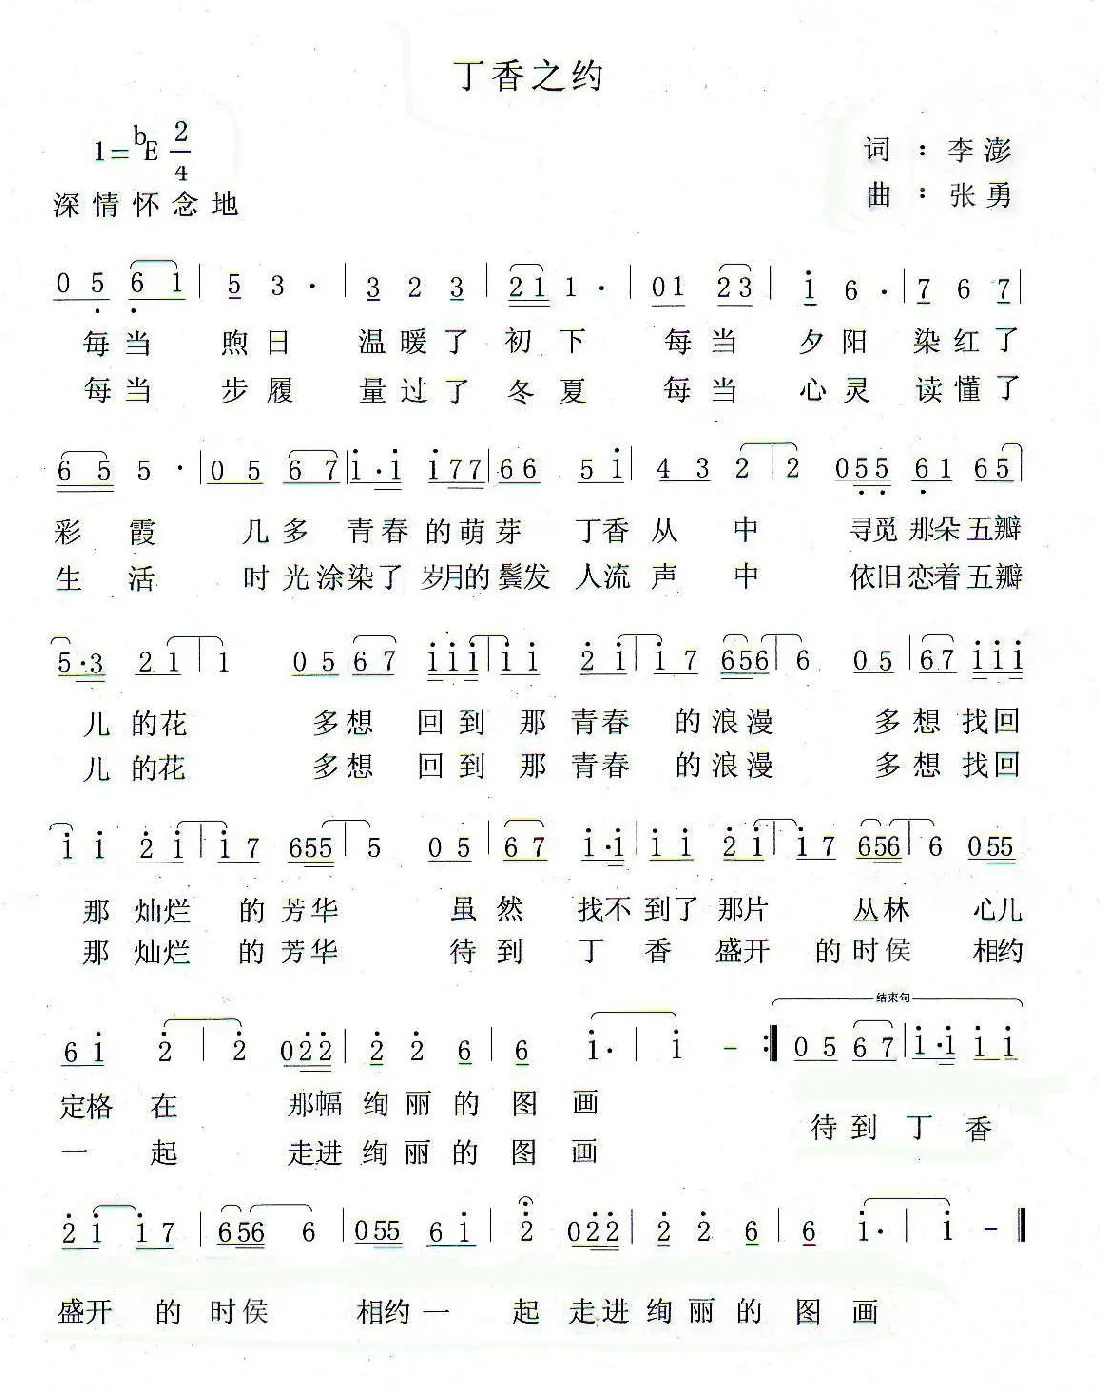 丁香之约
1=bE 2/4
词：李澎
深情怀念地
曲：张勇
0 5 6 1 | 5 3 · | 3 2 3 | 2 1 1 · | 0 1 2 3 | 1 6 · | 7 6 7 |
每当 煦日 温暖了初下 每当 夕阳 染红了
每当 步履 量过了冬夏 每当 心灵 读懂了
6 5 5 · | 0 5 6 7 | 1 · 1 1 7 7 | 6 6 5 1 | 4 3 2 2 0 5 5 6 1 6 5 |
彩霞 几多 青春的萌芽 丁香从 中 寻觅那朵五瓣
生活 时光涂染了 岁月的鬓发 人流声 中 依旧恋着五瓣
5 · 3 2 1 | 1 0 5 6 7 | 1 1 1 | 1 1 2 1 | 1 7 6 5 6 | 6 0 5 | 6 7 1 1 1
儿的花 多想 回到 那 青春 的浪漫 多想找回
儿的花 多想 回到 那 青春 的浪漫 多想找回
1 1 2 1 | 1 7 6 5 5 | 5 0 5 | 6 7 1 · 1 | 1 1 2 1 | 1 7 6 5 6 | 6 0 5 5
那 灿烂 的芳华 虽然 找不到了那片 丛林 心儿
那 灿烂 的芳华 待到 丁香 盛开 的时侯 相约
结束句
6 1 2 | 2 0 2 2 | 2 2 6 | 6 1 · | 1 - :| 0 5 6 7 | 1 · 1 1 1
定格 在 那幅绚丽的图画
待到丁香
一 起 走进绚丽的图画
2 1 1 7 | 6 5 6 6 | 0 5 5 6 1 | 2 0 2 2 | 2 2 6 | 6 1 · | 1 - ‖
盛开 的时侯 相约一 起走进绚丽的图画